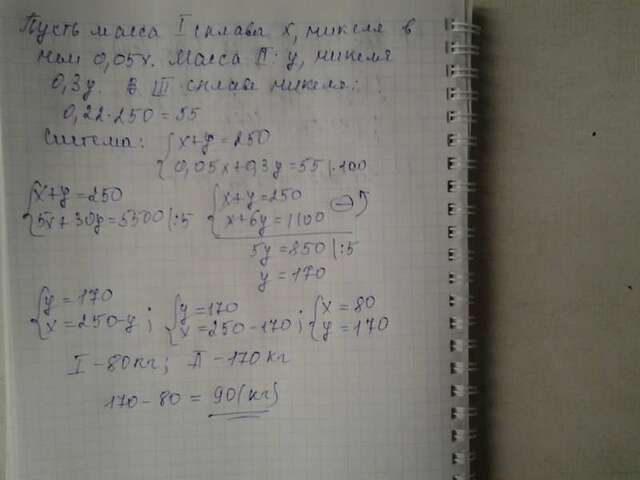 Пусть масса I сплава x, никеля в
нем 0,05x. Масса II: y, никеля
0,3y. В III сплаве никеля:
0,22·250=55
Система: {x+y=250
0,05x+0,3y=55 |·100
{x+y=250
5x+30y=5500 |:5
{x+y=250
x+6y=1100
5y=850 |:5
y=170
{y=170
x=250-y;
{y=170
x=250-170;
{x=80
y=170
I-80кг; II-170кг
170-80=90(кг)